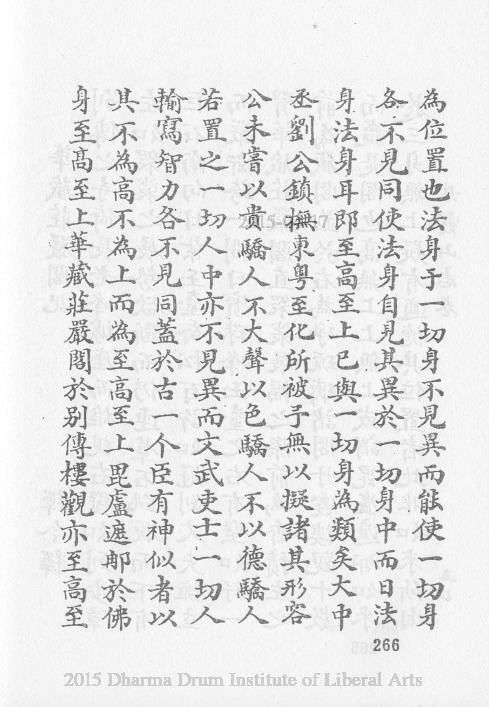 為位置也法身于一切身不見異而能使一切身
各不見同使法身自見其異於一切身中而曰法
身法身耳即至高至上已與一切身為類矣大中
丞劉公鎮撫東粵至化所被予無以擬諸其形容
公未嘗以貴驕人不大聲以色驕人不以德驕人
若置之一切人中亦不見異而文武吏士一切人
輸寫智力各不見同蓋於古一个臣有神似者以
其不為高不為上而為至高至上毘盧遮那於佛
身至高至上華藏莊嚴閣於別傳樓觀亦至高至
266
2015 Dharma Drum Institute of Liberal Arts